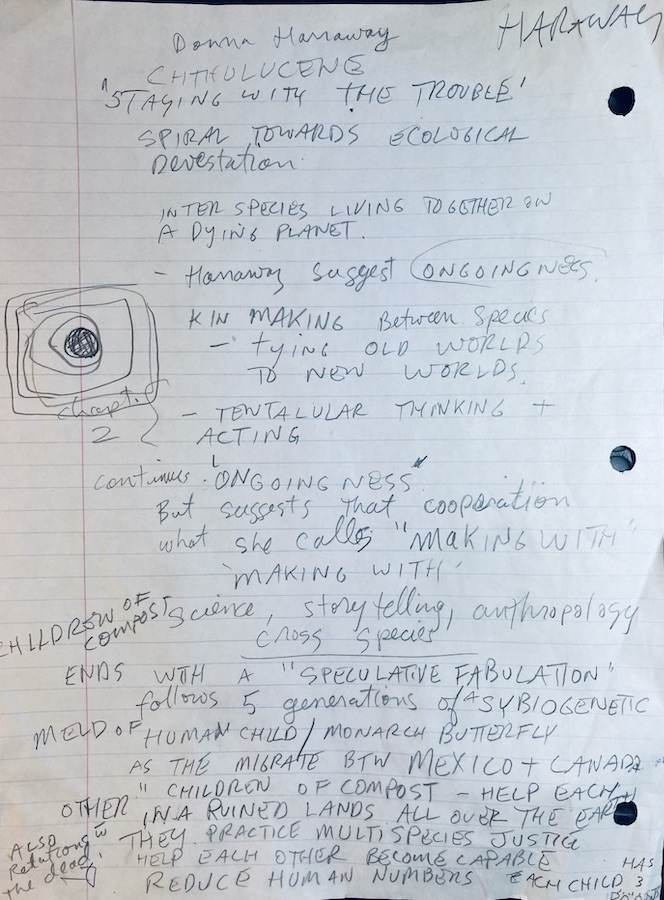 HARAWAY
Donna Harraway
CHTHULUCENE
'STAYING WITH THE TROUBLE'
SPIRAL TOWARDS ECOLOGICAL
Devestation.
INTER SPECIES LIVING TOGETHER ON
A DYING PLANET.
- Harraway suggest ONGOINGNESS.
KIN MAKING Between Species
- tying OLD WORLDS
TO NEW WORLDS.
chapt.
2
- TENTALULAR THINKING +
ACTING
continues 'ONGOINGNESS'
But suggests that cooperation
what she calls "MAKING WITH"
'MAKING WITH'
CHILDREN OF
COMPOST
Science, storytelling, anthropology
cross species
ENDS WITH A "SPECULATIVE FABULATION"
follows 5 generations of A SYBIOGENETIC
MELD OF HUMAN CHILD / MONARCH BUTTERFLY
AS THE MIGRATE BTW MEXICO + CANADA
"CHILDREN OF COMPOST - HELP EACH
OTHER IN A RUINED LANDS ALL OVER THE EARTH
THEY PRACTICE MULTISPECIES JUSTICE
ALSO
Relations w
the dead
HELP EACH OTHER BECOME CAPABLE
REDUCE HUMAN NUMBERS EACH CHILD HAS
3